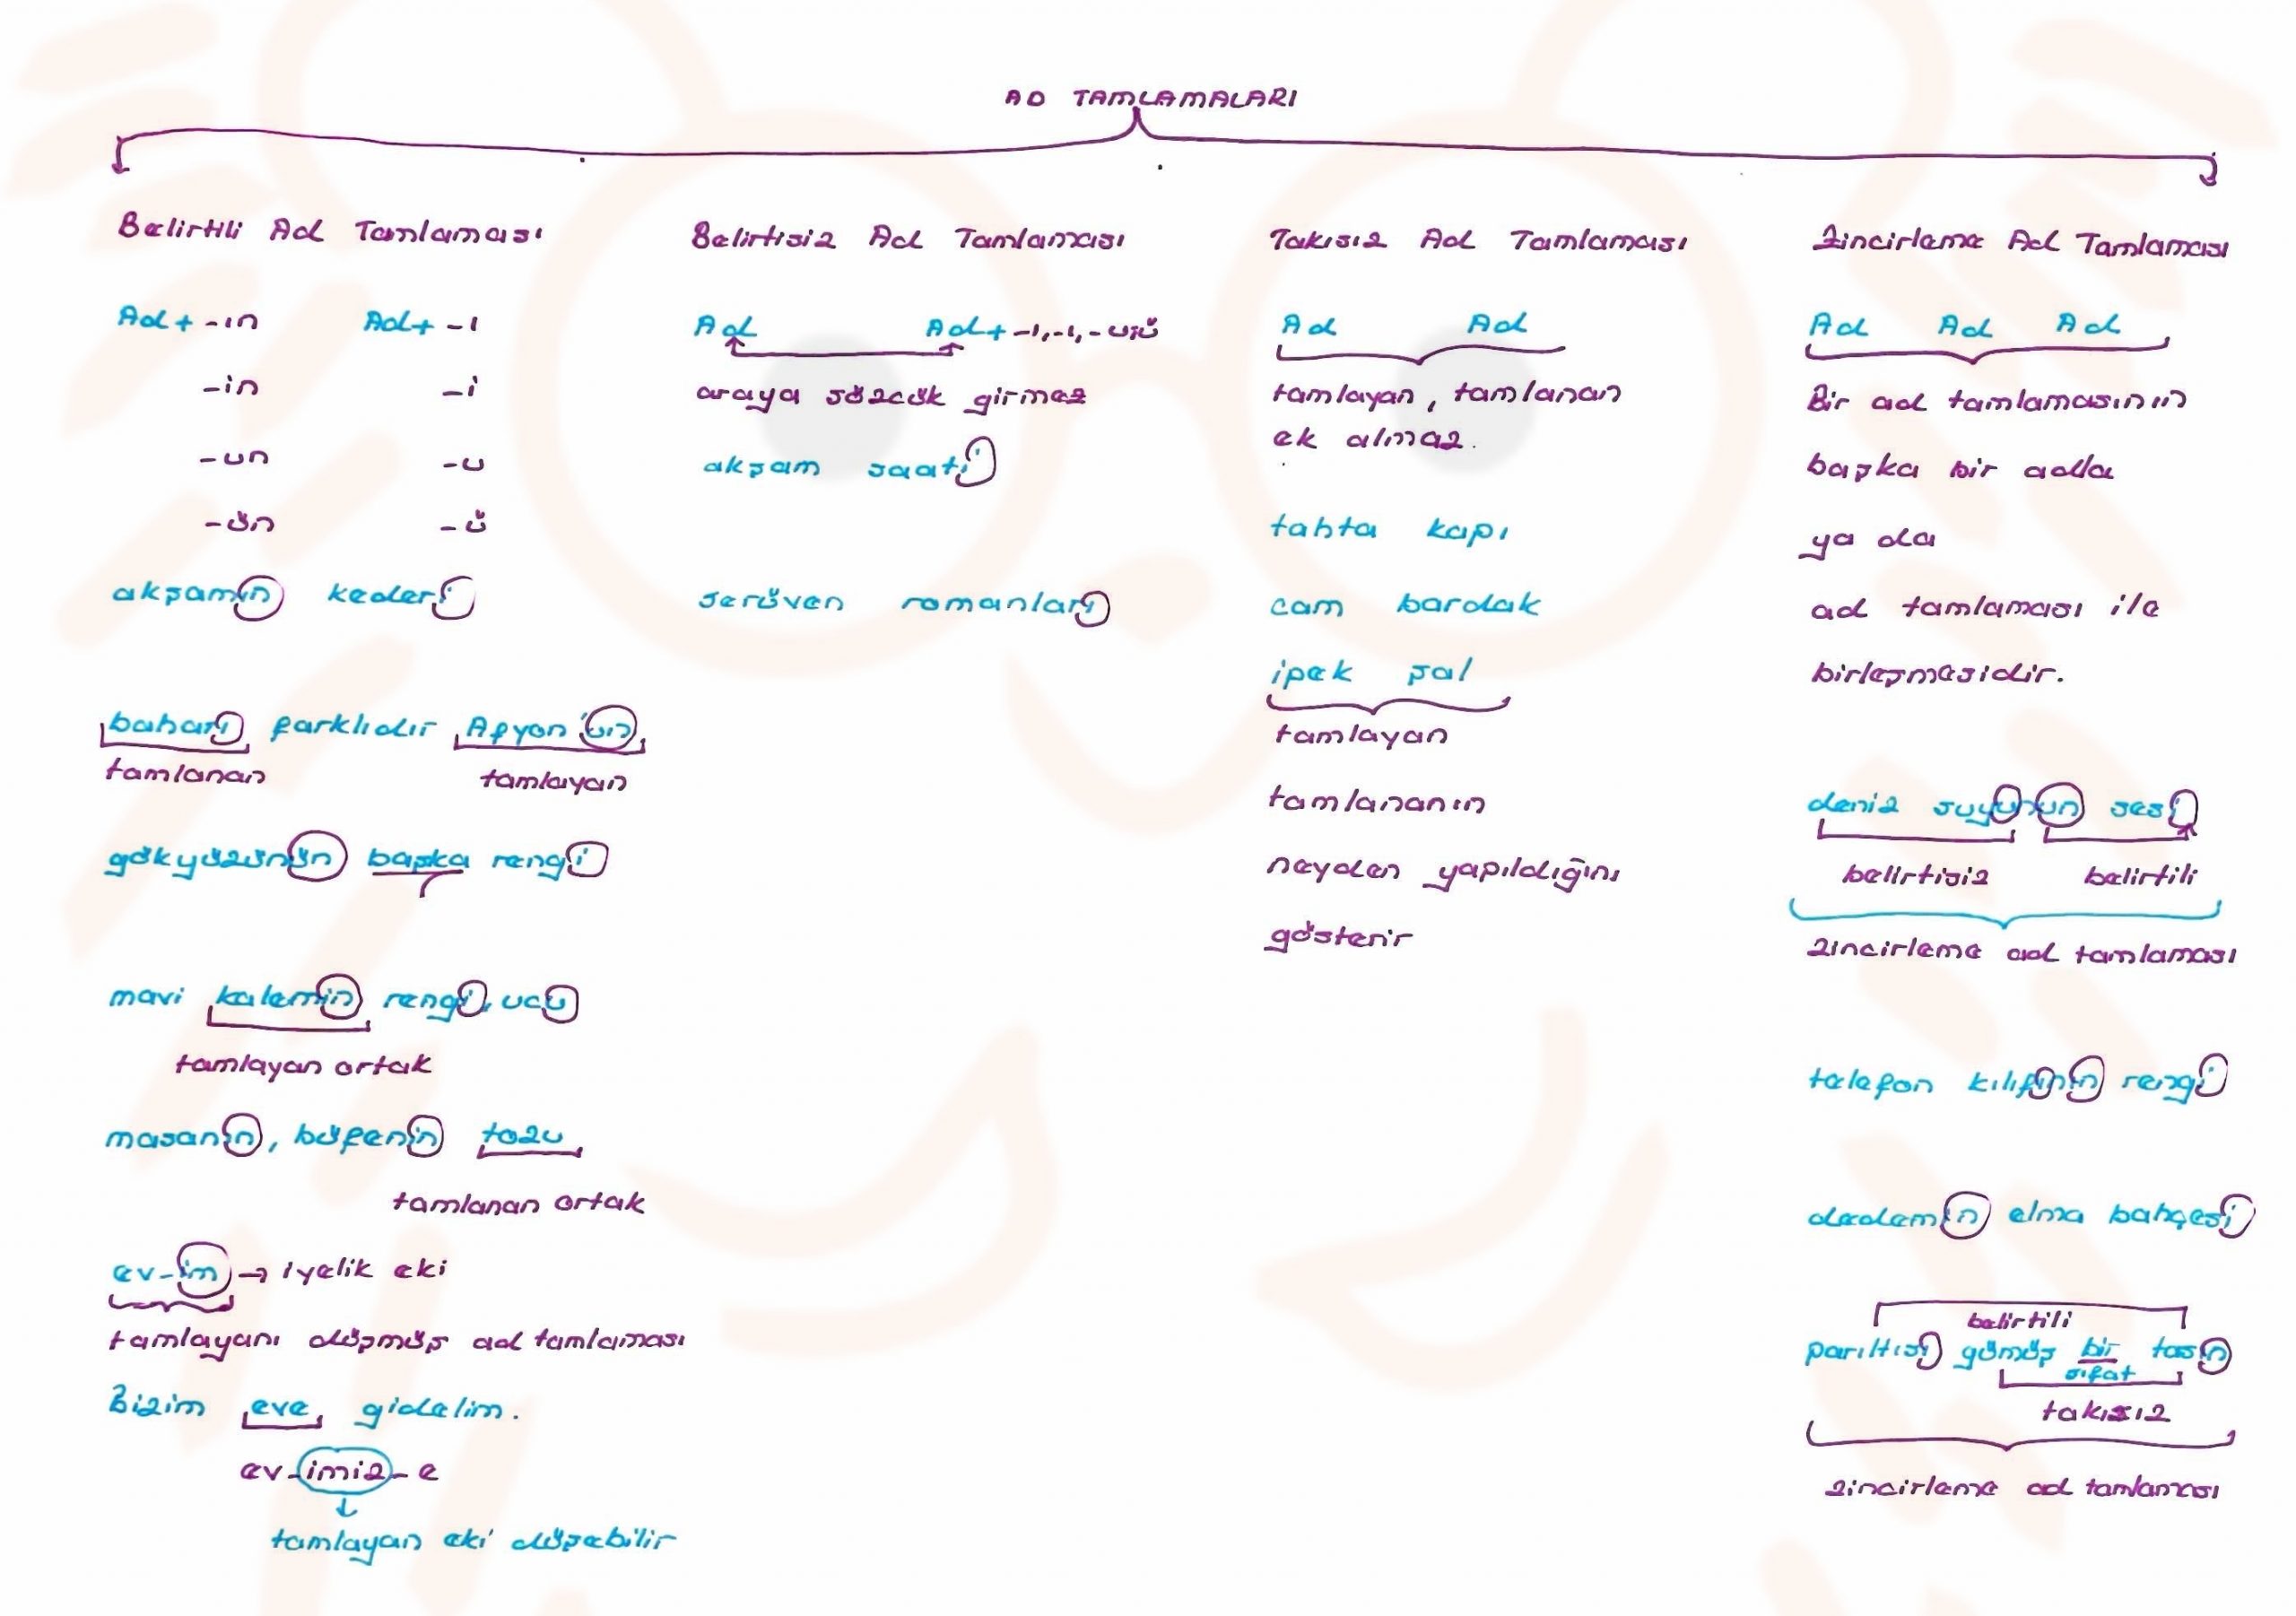 AD TAMLAMALARI
Belirtili Ad Tamlaması
Ad+ -ın Ad+ -ı
-in -i
-un -u
-ün -ü
akşamın kederi
baharı farklıdır Afyon'un
tamlanan tamlayan
gökyüzünün başka rengi
mavi kalemin rengi, ucu
tamlayan ortak
masanın, büfenin tozu
tamlanan ortak
ev-im → iyelik eki
tamlayanı düşmüş ad tamlaması
Bizim eve gidelim.
ev-imiz-e
tamlayan eki düşebilir
Belirtisiz Ad Tamlaması
Ad Ad+ -ı,-i,-u,ü
araya sözcük girmez
akşam saati
serüven romanları
Takısız Ad Tamlaması
Ad Ad
tamlayan, tamlanan
ek almaz.
tahta kapı
cam bardak
ipek şal
tamlayan
tamlananın
neyden yapıldığını
gösterir
Zincirleme Ad Tamlaması
Ad Ad Ad
Bir ad tamlamasının
başka bir adla
ya da
ad tamlaması ile
birleşmesidir.
deniz suyunun sesi
belirtisiz belirtili
zincirleme ad tamlaması
telefon kılıfının rengi
dedemin elma bahçesi
belirtili
parıltısı gümüş bir tasın
sıfat
takısız
zincirleme ad tamlaması